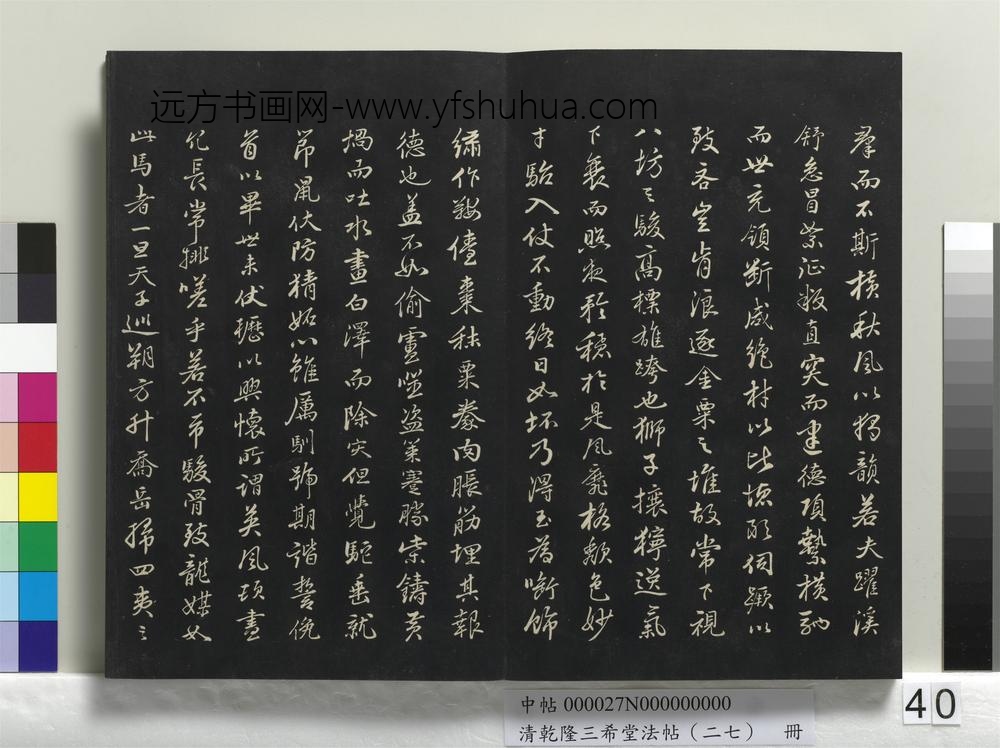 远方书画网-www.yfshuhua.com
羣而不斯横秋風以獨韻若夫躍溪
舒急冒絮征叛直突而建德項縶横馳
而世充領斷咸絶材以比德敢伺蹶以
致吝豈肯浪逐金粟之堆故常下視
八坊之駿高標雄跨也獅子攘獰逸氣
下衰而照夜矜穩於是風靡格頹色妙
才駘入仗不動終日如坏乃得玉為銜飾
繡作鞍儓棗秣粟豢肉脹筋埋其報
德也蓋不如偷盧噬盜策蹇勝柴鑄黄
蝸而吐水畫白澤而除灾但覺駝垂就
節鼠伏防猜妬心雖厲馴號期諧誓俛
首以畢世未伏櫪以興懷所謂英風頓盡
冗長常排嗟乎若不市駿骨致龍媒如
此馬者一旦天子巡朔方升喬岳掃四夷之
中帖 000027N000000000
清乾隆三希堂法帖（二七） 冊
40